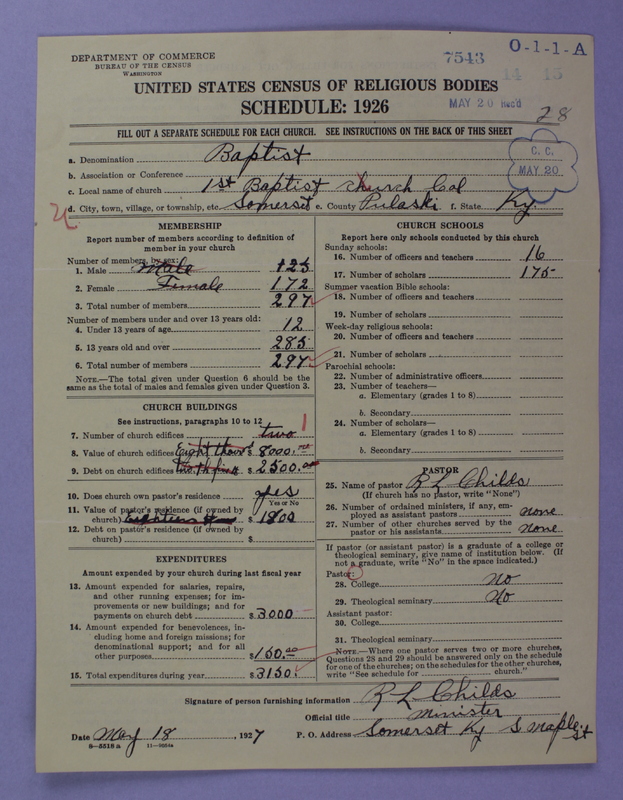 DEPARTMENT OF COMMERCE
BUREAU OF THE CENSUS
WASHINGTON
7543
O-1-1-A
14 15
UNITED STATES CENSUS OF RELIGIOUS BODIES
SCHEDULE: 1926
MAY 20 Rec'd
28
FILL OUT A SEPARATE SCHEDULE FOR EACH CHURCH. SEE INSTRUCTIONS ON THE BACK OF THIS SHEET
C. C.
MAY 20
a. Denomination Baptist
b. Association or Conference
c. Local name of church 1st Baptist church Col
d. City, town, village, or township, etc. Somerset e. County Pulaski f. State Ky
MEMBERSHIP
Report number of members according to definition of member in your church
Number of members, by sex:
1. Male Male 125
2. Female Female 172
3. Total number of members 297
Number of members under and over 13 years old:
4. Under 13 years of age 12
5. 13 years old and over 285
6. Total number of members 297
NOTE.—The total given under Question 6 should be the
same as the total of males and females given under Question 3.
CHURCH BUILDINGS
See instructions, paragraphs 10 to 12
7. Number of church edifices two 1
8. Value of church edifices Eight thous $ 8000.00
9. Debt on church edifices $ 2500.00
10. Does church own pastor's residence yes
Yes or No
11. Value of pastor's residence (if owned by
church) $ 1800
12. Debt on pastor's residence (if owned by
church) $
EXPENDITURES
Amount expended by your church during last fiscal year
13. Amount expended for salaries, repairs,
and other running expenses; for im-
provements or new buildings; and for
payments on church debt $ 3000
14. Amount expended for benevolences, in-
cluding home and foreign missions; for
denominational support; and for all
other purposes $ 150.00
15. Total expenditures during year $ 3150.
CHURCH SCHOOLS
Report here only schools conducted by this church
Sunday schools:
16. Number of officers and teachers 16
17. Number of scholars 175
Summer vacation Bible schools:
18. Number of officers and teachers
19. Number of scholars
Week-day religious schools:
20. Number of officers and teachers
21. Number of scholars
Parochial schools:
22. Number of administrative officers
23. Number of teachers—
a. Elementary (grades 1 to 8)
b. Secondary
24. Number of scholars—
a. Elementary (grades 1 to 8)
b. Secondary
PASTOR
25. Name of pastor R L Childs
(If church has no pastor, write "None")
26. Number of ordained ministers, if any, em-
ployed as assistant pastors none
27. Number of other churches served by the
pastor or his assistants none
If pastor (or assistant pastor) is a graduate of a college or
theological seminary, give name of institution below. (If
not a graduate, write "No" in the space indicated.)
Pastor:
28. College no
29. Theological seminary No
Assistant pastor:
30. College
31. Theological seminary
NOTE.—Where one pastor serves two or more churches,
Questions 28 and 29 should be answered only on the schedule
for one of the churches; on the schedules for the other churches,
write "See schedule for church."
Signature of person furnishing information R L Childs
Official title Minister
Date May 18, 1927 P. O. Address Somerset Ky S Maple St
8—5518 a